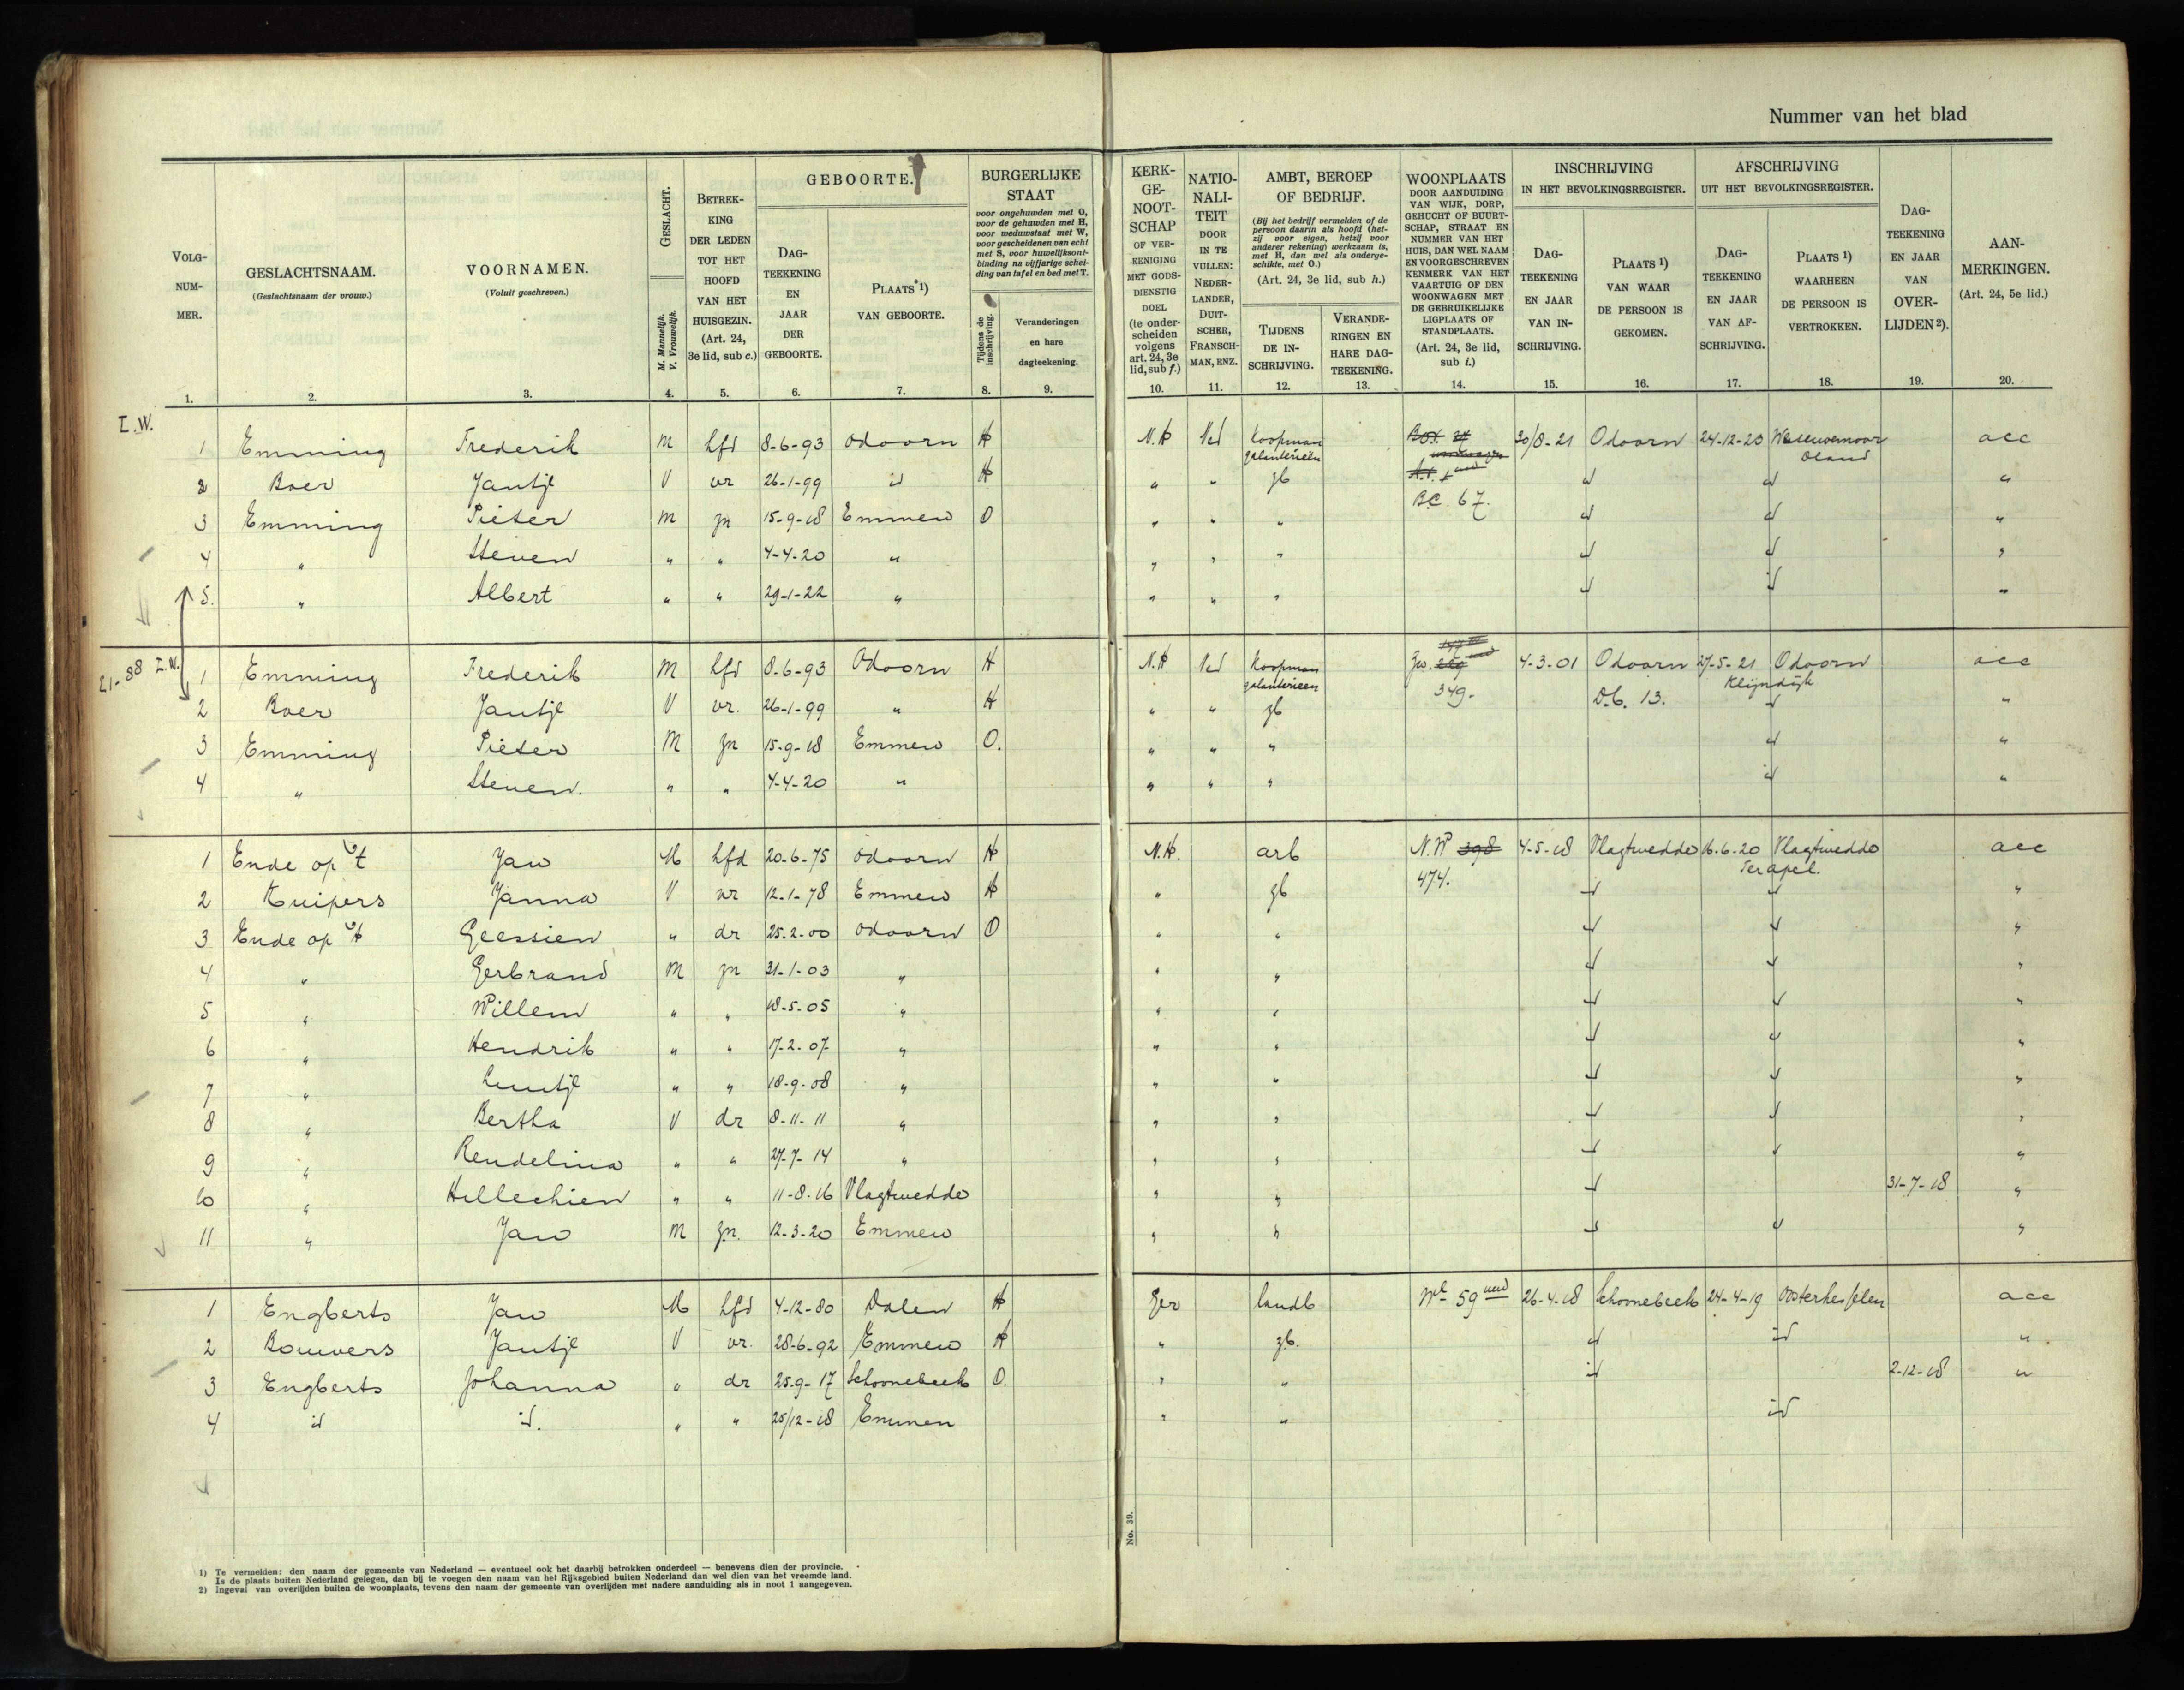 Nummer van het blad
VOLG-NUM-MER. 1.
GESLACHTSNAAM. (Geslachtsnaam der vrouw.) 2.
VOORNAMEN. (Voluit geschreven.) 3.
GESLACHT. M. Mannelijk. V. Vrouwelijk. 4.
BETREK-KING DER LEDEN TOT HET HOOFD VAN HET HUISGEZIN. (Art. 24, 3e lid, sub c.) 5.
GEBOORTE.
DAG-TEEKENING EN JAAR DER GEBOORTE. 6.
PLAATS 1) VAN GEBOORTE. 7.
BURGERLIJKE STAAT
voor ongehuwden met O, voor de gehuwden met H, voor weduwstaat met W, voor gescheidenen van echt met S, voor huwelijksont-binding na vijfjarige schei-ding van tafel en bed met T.
Tijdens de inschrijving. 8.
Veranderingen en hare dagteekening. 9.
KERK-GE-NOOT-SCHAP OF VER-EENIGING MET GODS-DIENSTIG DOEL (te onder-scheiden volgens art. 24, 3e lid, sub f.) 10.
NATIO-NALI-TEIT DOOR IN TE VULLEN: NEDER-LANDER, DUIT-SCHER, FRANSCH-MAN, ENZ. 11.
AMBT, BEROEP OF BEDRIJF.
(Bij het bedrijf vermelden of de persoon daarin als hoofd (het-zij voor eigen, hetzij voor anderer rekening) werkzaam is, met H, dan wel als onderge-schikte, met O.)
(Art. 24, 3e lid, sub h.)
TIJDENS DE IN-SCHRIJVING. 12.
VERANDE-RINGEN EN HARE DAG-TEEKENING. 13.
WOONPLAATS DOOR AANDUIDING VAN WIJK, DORP, GEHUCHT OF BUURT-SCHAP, STRAAT EN NUMMER VAN HET HUIS, DAN WEL NAAM EN VOORGESCHREVEN KENMERK VAN HET VAARTUIG OF DEN WOONWAGEN MET DE GEBRUIKELIJKE LIGPLAATS OF STANDPLAATS. (Art. 24, 3e lid, sub i.) 14.
INSCHRIJVING IN HET BEVOLKINGSREGISTER.
DAG-TEEKENING EN JAAR VAN IN-SCHRIJVING. 15.
PLAATS 1) VAN WAAR DE PERSOON IS GEKOMEN. 16.
AFSCHRIJVING UIT HET BEVOLKINGSREGISTER.
DAG-TEEKENING EN JAAR VAN AF-SCHRIJVING. 17.
PLAATS 1) WAARHEEN DE PERSOON IS VERTROKKEN. 18.
DAG-TEEKENING EN JAAR VAN OVER-LIJDEN 2). 19.
AAN-MERKINGEN. (Art. 24, 5e lid.) 20.
I.W.
1 Emming Frederik M hfd 8-6-93 Odoorn H N.H Ned Koopman galanterieën 30/8-21 Odoorn 24-12-23 acc
2 Boer Jantje V vr 26-1-99 id H " " gb B.C. 67. id id "
3 Emming Pieter M zn 15-9-18 Emmen O " " " id id "
4 " Steven " " 4-4-20 " " " " id id "
5. " Albert " " 29-1-22 " " " " id id "
21-38 I.W.
1 Emming Frederik M hfd 8-6-93 Odoorn H N.H Ned Koopman galanterieen 349. 4-3-01 Odoorn 27-5-21 Odoorn Klijndijk acc
2 Boer Jantje V vr. 26-1-99 " H " " gb D.b. 13. id "
3 Emming Pieter M zn 15-9-18 Emmen O. " " " id "
4 " Steven. " " 4-4-20 " " " " id "
1 Ende op 't Jan M hfd 20-6-75 Odoorn H N.H. arb N.W 398 4-5-18 Vlagtwedde 16-6-20 Vlagtwedde Terapel. acc
2 Kuipers Janna V vr 12-1-78 Emmen H " gb 474. id id "
3 Ende op 't Geessien " dr 25-2-00 Odoorn O " " id id "
4 " Gerbrand M zn 21-1-03 " " " id id "
5 " Willem " " 18-5-05 " " " id id "
6 " Hendrik " " 17-2-07 " " " id id "
7 " Luutje " " 18-9-08 " " " id id "
8 " Bertha V dr 8-11-11 " " " id id "
9 " Rendelina " " 27-7-14 " " " id id "
10 " Hillechien " " 11-8-16 Vlagtwedde " " id 31-7-18 "
11 " Jan M zn. 12-3-20 Emmen " " id id "
1 Engberts Jan M hfd 4-12-80 Dalen H Ger landb 59 26-4-18 Schoonebeek 24-4-19 Oosterhesselen acc
2 Bouwers Jantje V vr. 28-6-92 Emmen H " gb. id id "
3 Engberts Johanna " dr 25-9-17 Schoonebeek O. " " id 2-12-18 "
4 id id. " " 25/12-18 Emmen " " id
No. 39.
1) Te vermelden: den naam der gemeente van Nederland — eventueel ook het daarbij betrokken onderdeel — benevens dien der provincie.
Is de plaats buiten Nederland gelegen, dan bij te voegen den naam van het Rijksgebied buiten Nederland dan wel dien van het vreemde land.
2) Ingeval van overlijden buiten de woonplaats, tevens den naam der gemeente van overlijden met nadere aanduiding als in noot 1 aangegeven.